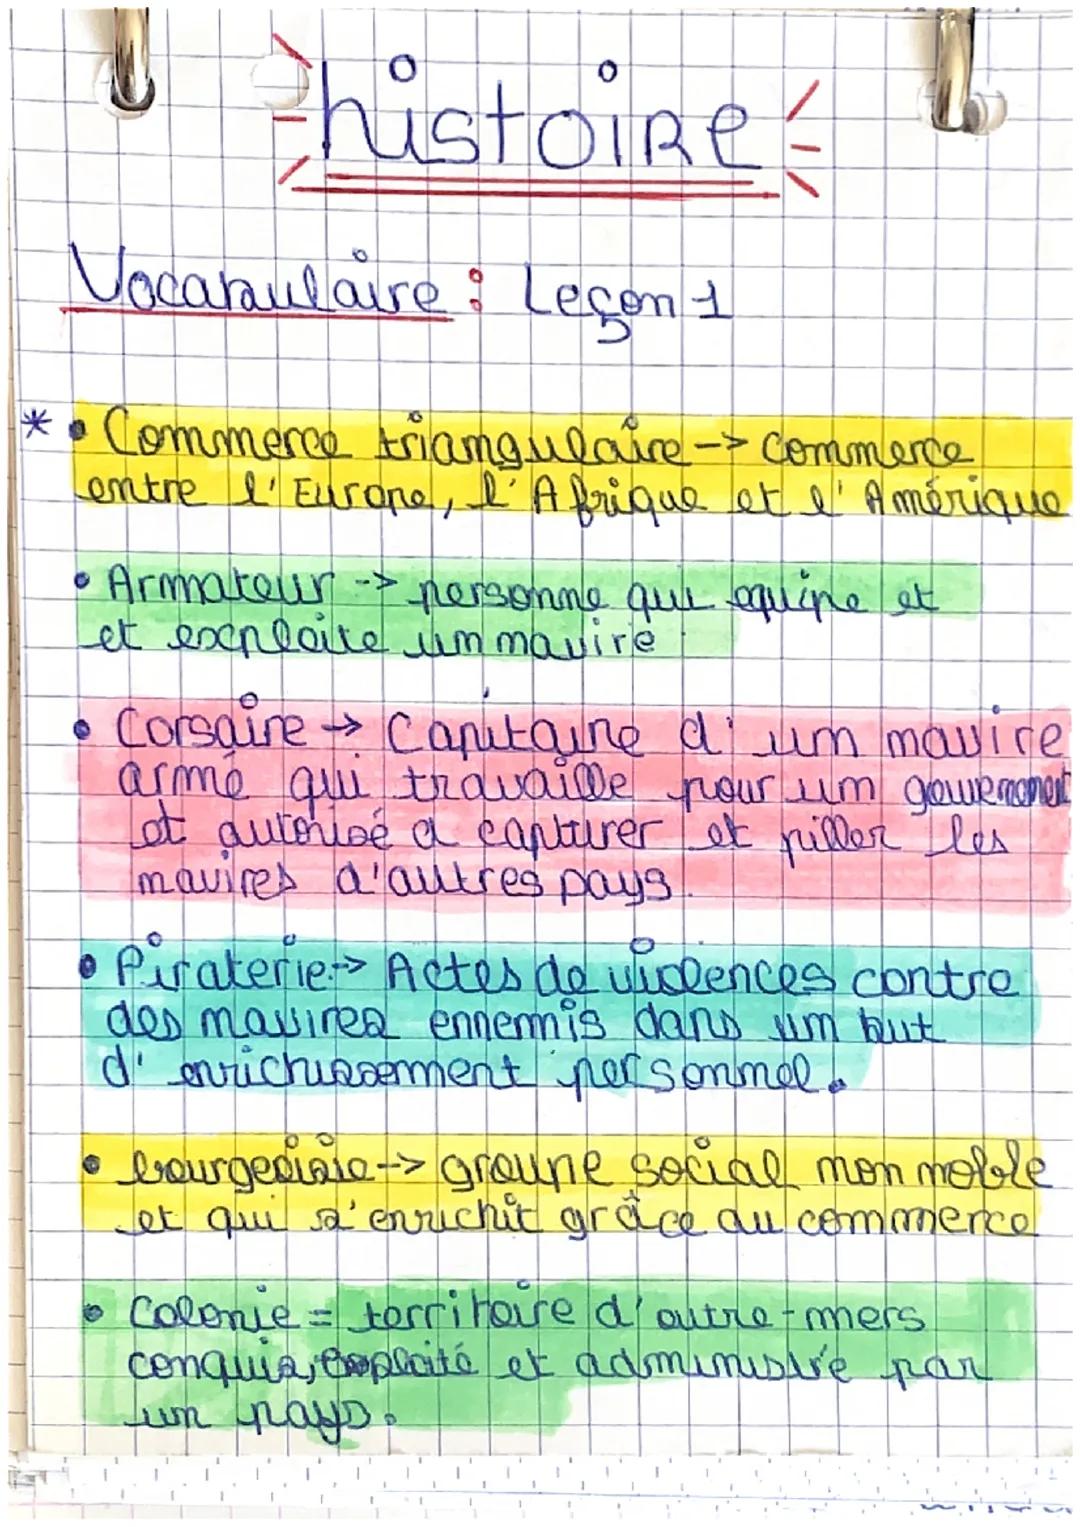 histoire
Vocabulaire : Leçon 1
* • Commerce triangulaire -> commerce
entre l'Europe, l'Afrique et l'Amérique
• Armateur -> personne qui equipe et
et exploite un navire
• Corsaire -> Capitaine d'un navire
armé qui travaille pour un gouvernement
et autorisé a capturer et piller les
navires d'autres pays.
• Piraterie -> Actes de violences contre
des navires ennemis dans un but
d'enrichissement personnel.
• bourgeoisie -> groupe social non noble
et qui s'enrichit grâce au commerce
• Colonie = territoire d'outre-mers
conquis, exploité et administré par
un pays.